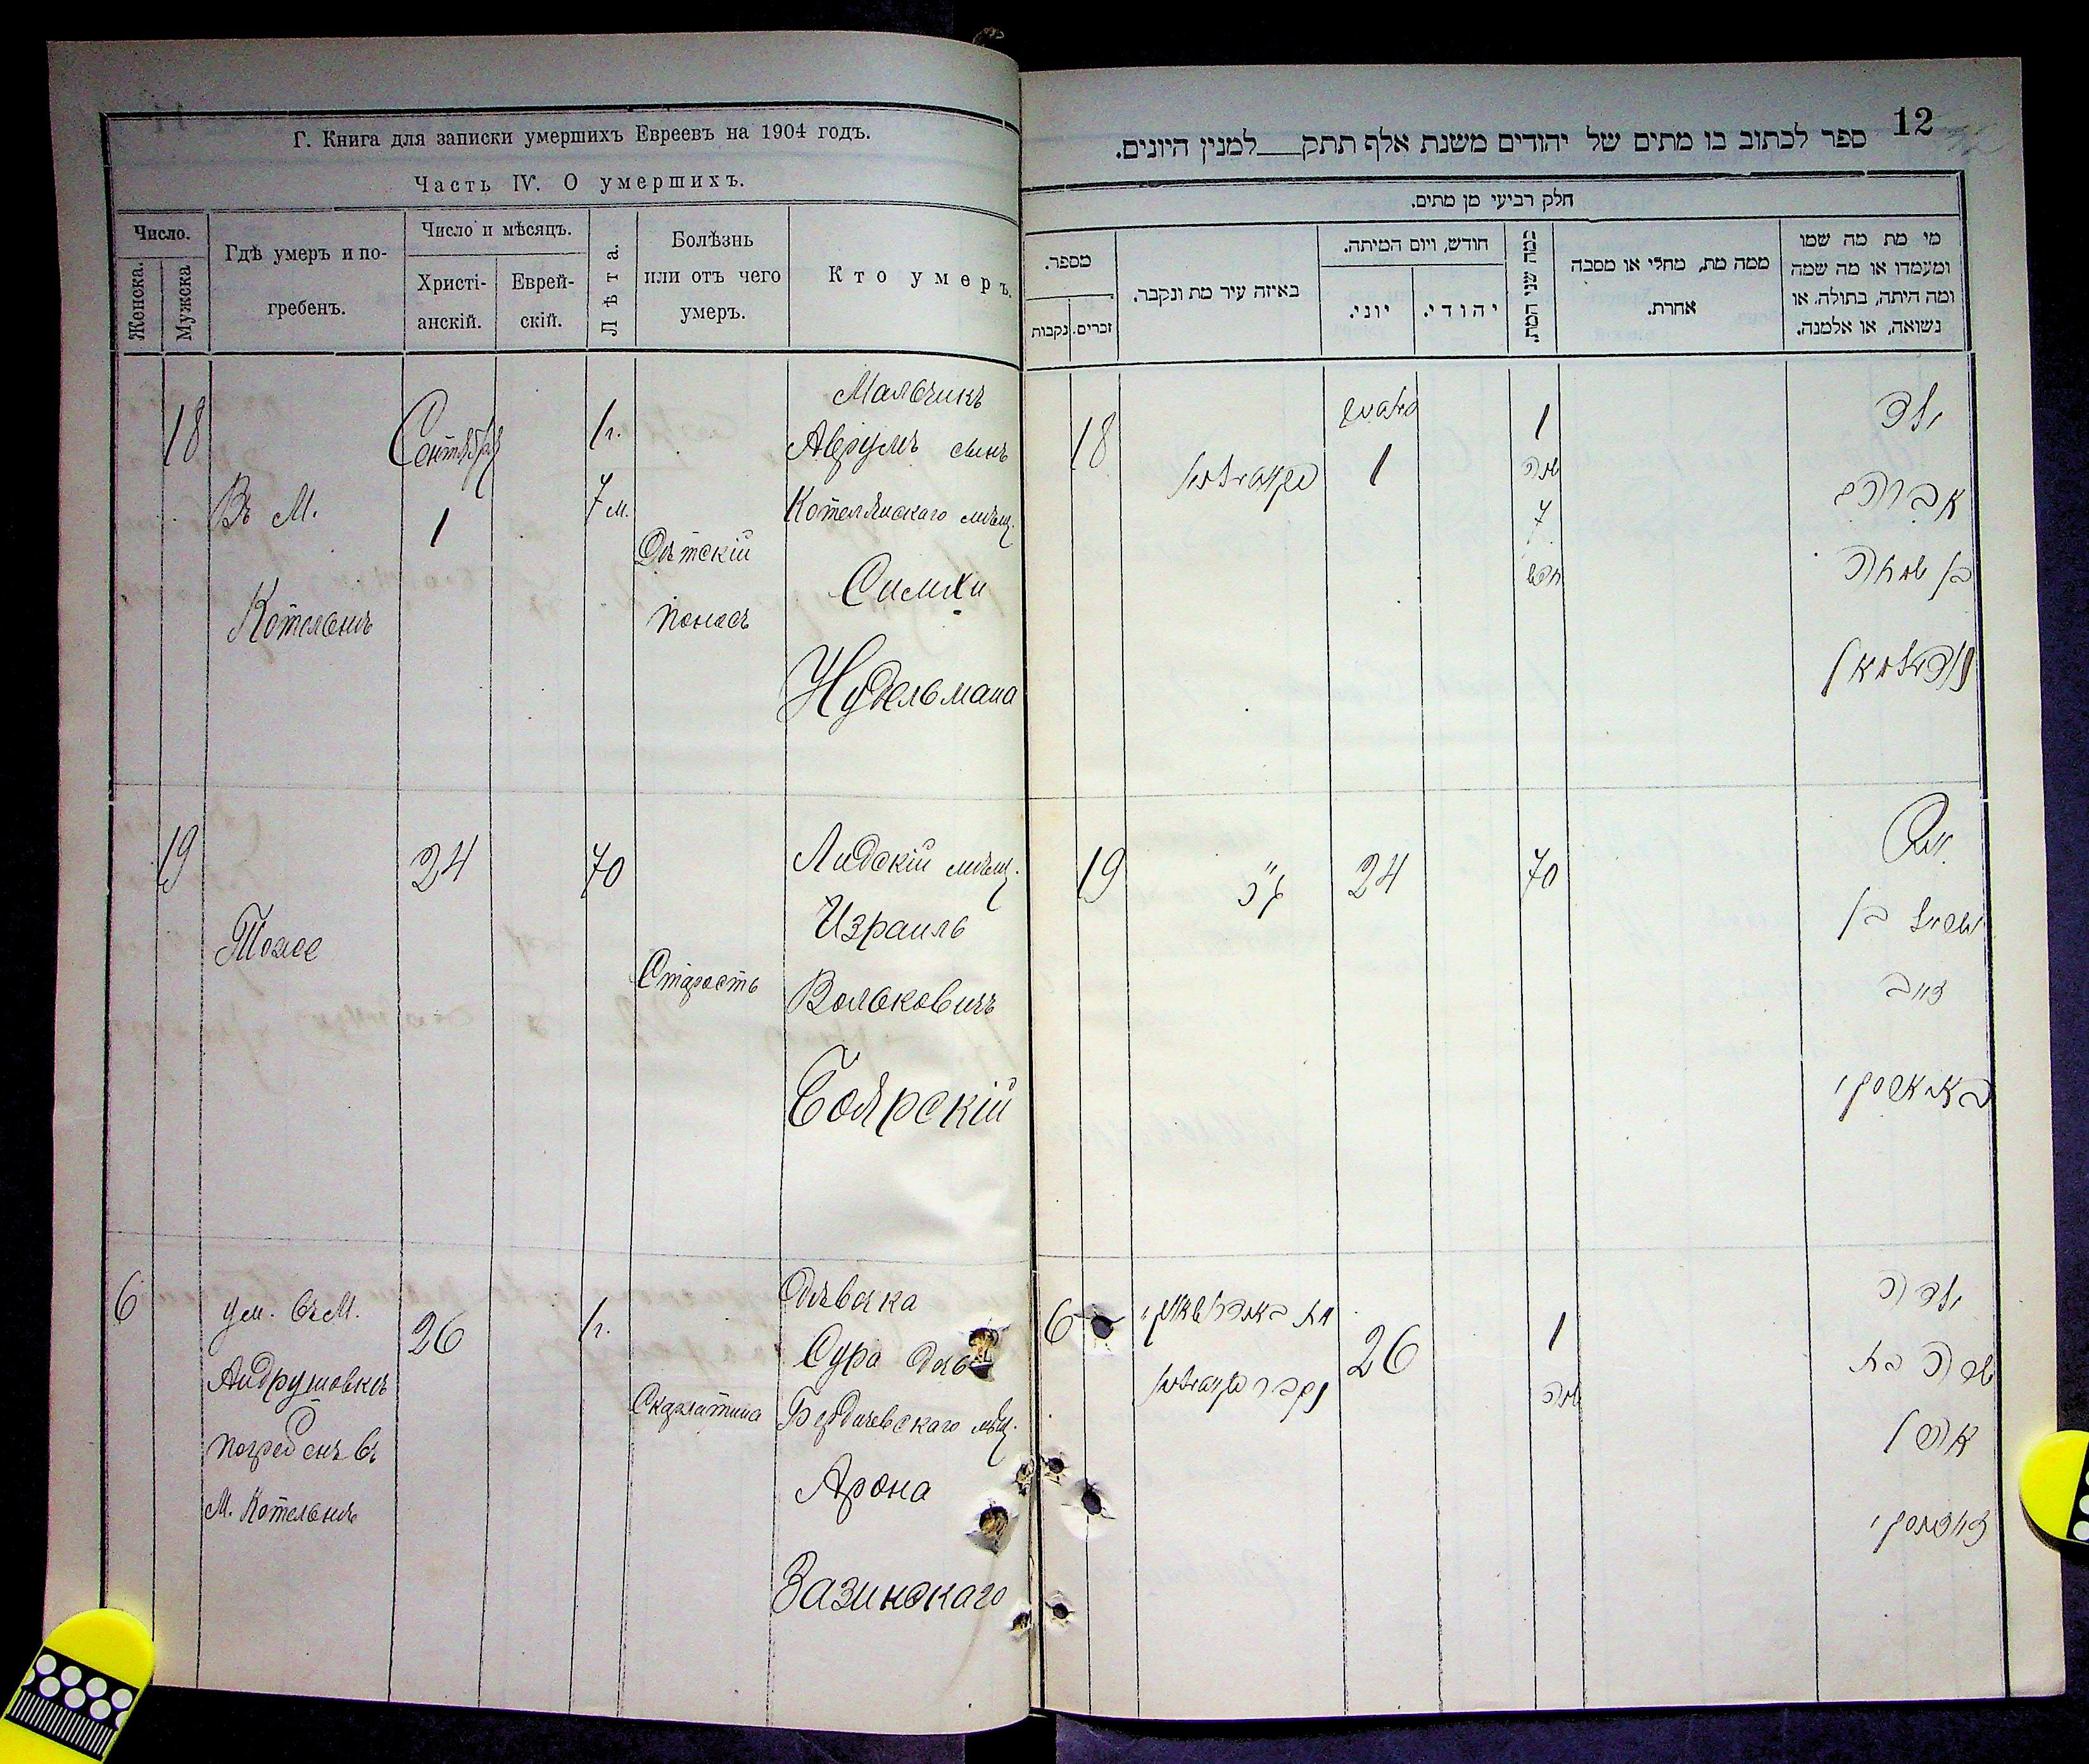 Г. Книга для записки умершихъ Евреевъ на 1904 годъ.
Часть IV. О умершихъ.
Число.
Женска.
Мужска
Гдѣ умеръ и по-
гребенъ.
Число и мѣсяцъ.
Христі-
анскій.
Еврей-
скій.
Лѣта.
Болѣзнь
или отъ чего
умеръ.
Кто умеръ.
18
Въ М.
Котельнѣ
Сентября
1
1 г.
7 м.
Дѣтскій
поносъ
Мальчикъ
Аврумъ сынъ
Котелянскаго мѣщ.
Симхи
Нудельмана
19
Тоже
24
70
Старость
Лидскій мѣщ.
Израиль
Вольковичъ
Боярскій
6
ум. въ М.
Андрушовкѣ
погребенъ въ
М. Котельнѣ
26
1 г.
Скарлатина
Дѣвочка
Сура
Бердичевскаго мѣщ.
Арона
Зазинскаго
12
ספר לכתוב בו מתים של יהודים משנת אלף תתק___למנין היונים.
חלק רביעי מן מתים.
מספר.
נקבות
זכרים.
באיזה עיר מת ונקבר.
חודש, ויום המיתה.
יוני.
יהודי.
כמה שני המת.
ממה מת, מחלי או מסבה
אחרת.
מי מת מה שמו
ומעמדו או מה שמה
ומה היתה, בתולה, או
נשואה, או אלמנה.
18
1
1
שנה
7
חדש
ילד
אברהם
בן שמחה
נודעלמאן
19
כנ"ל
24
70
איש
ישראל בן
זאב
באיארסקי
6
מת באנדרושאווקי
26
1
שנה
ילדה
שרה בת
אהרן